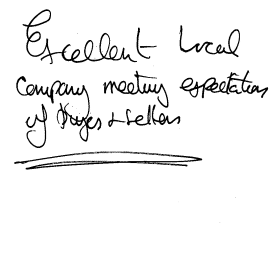 Excellent local
company meeting expectations
of buyers + sellers